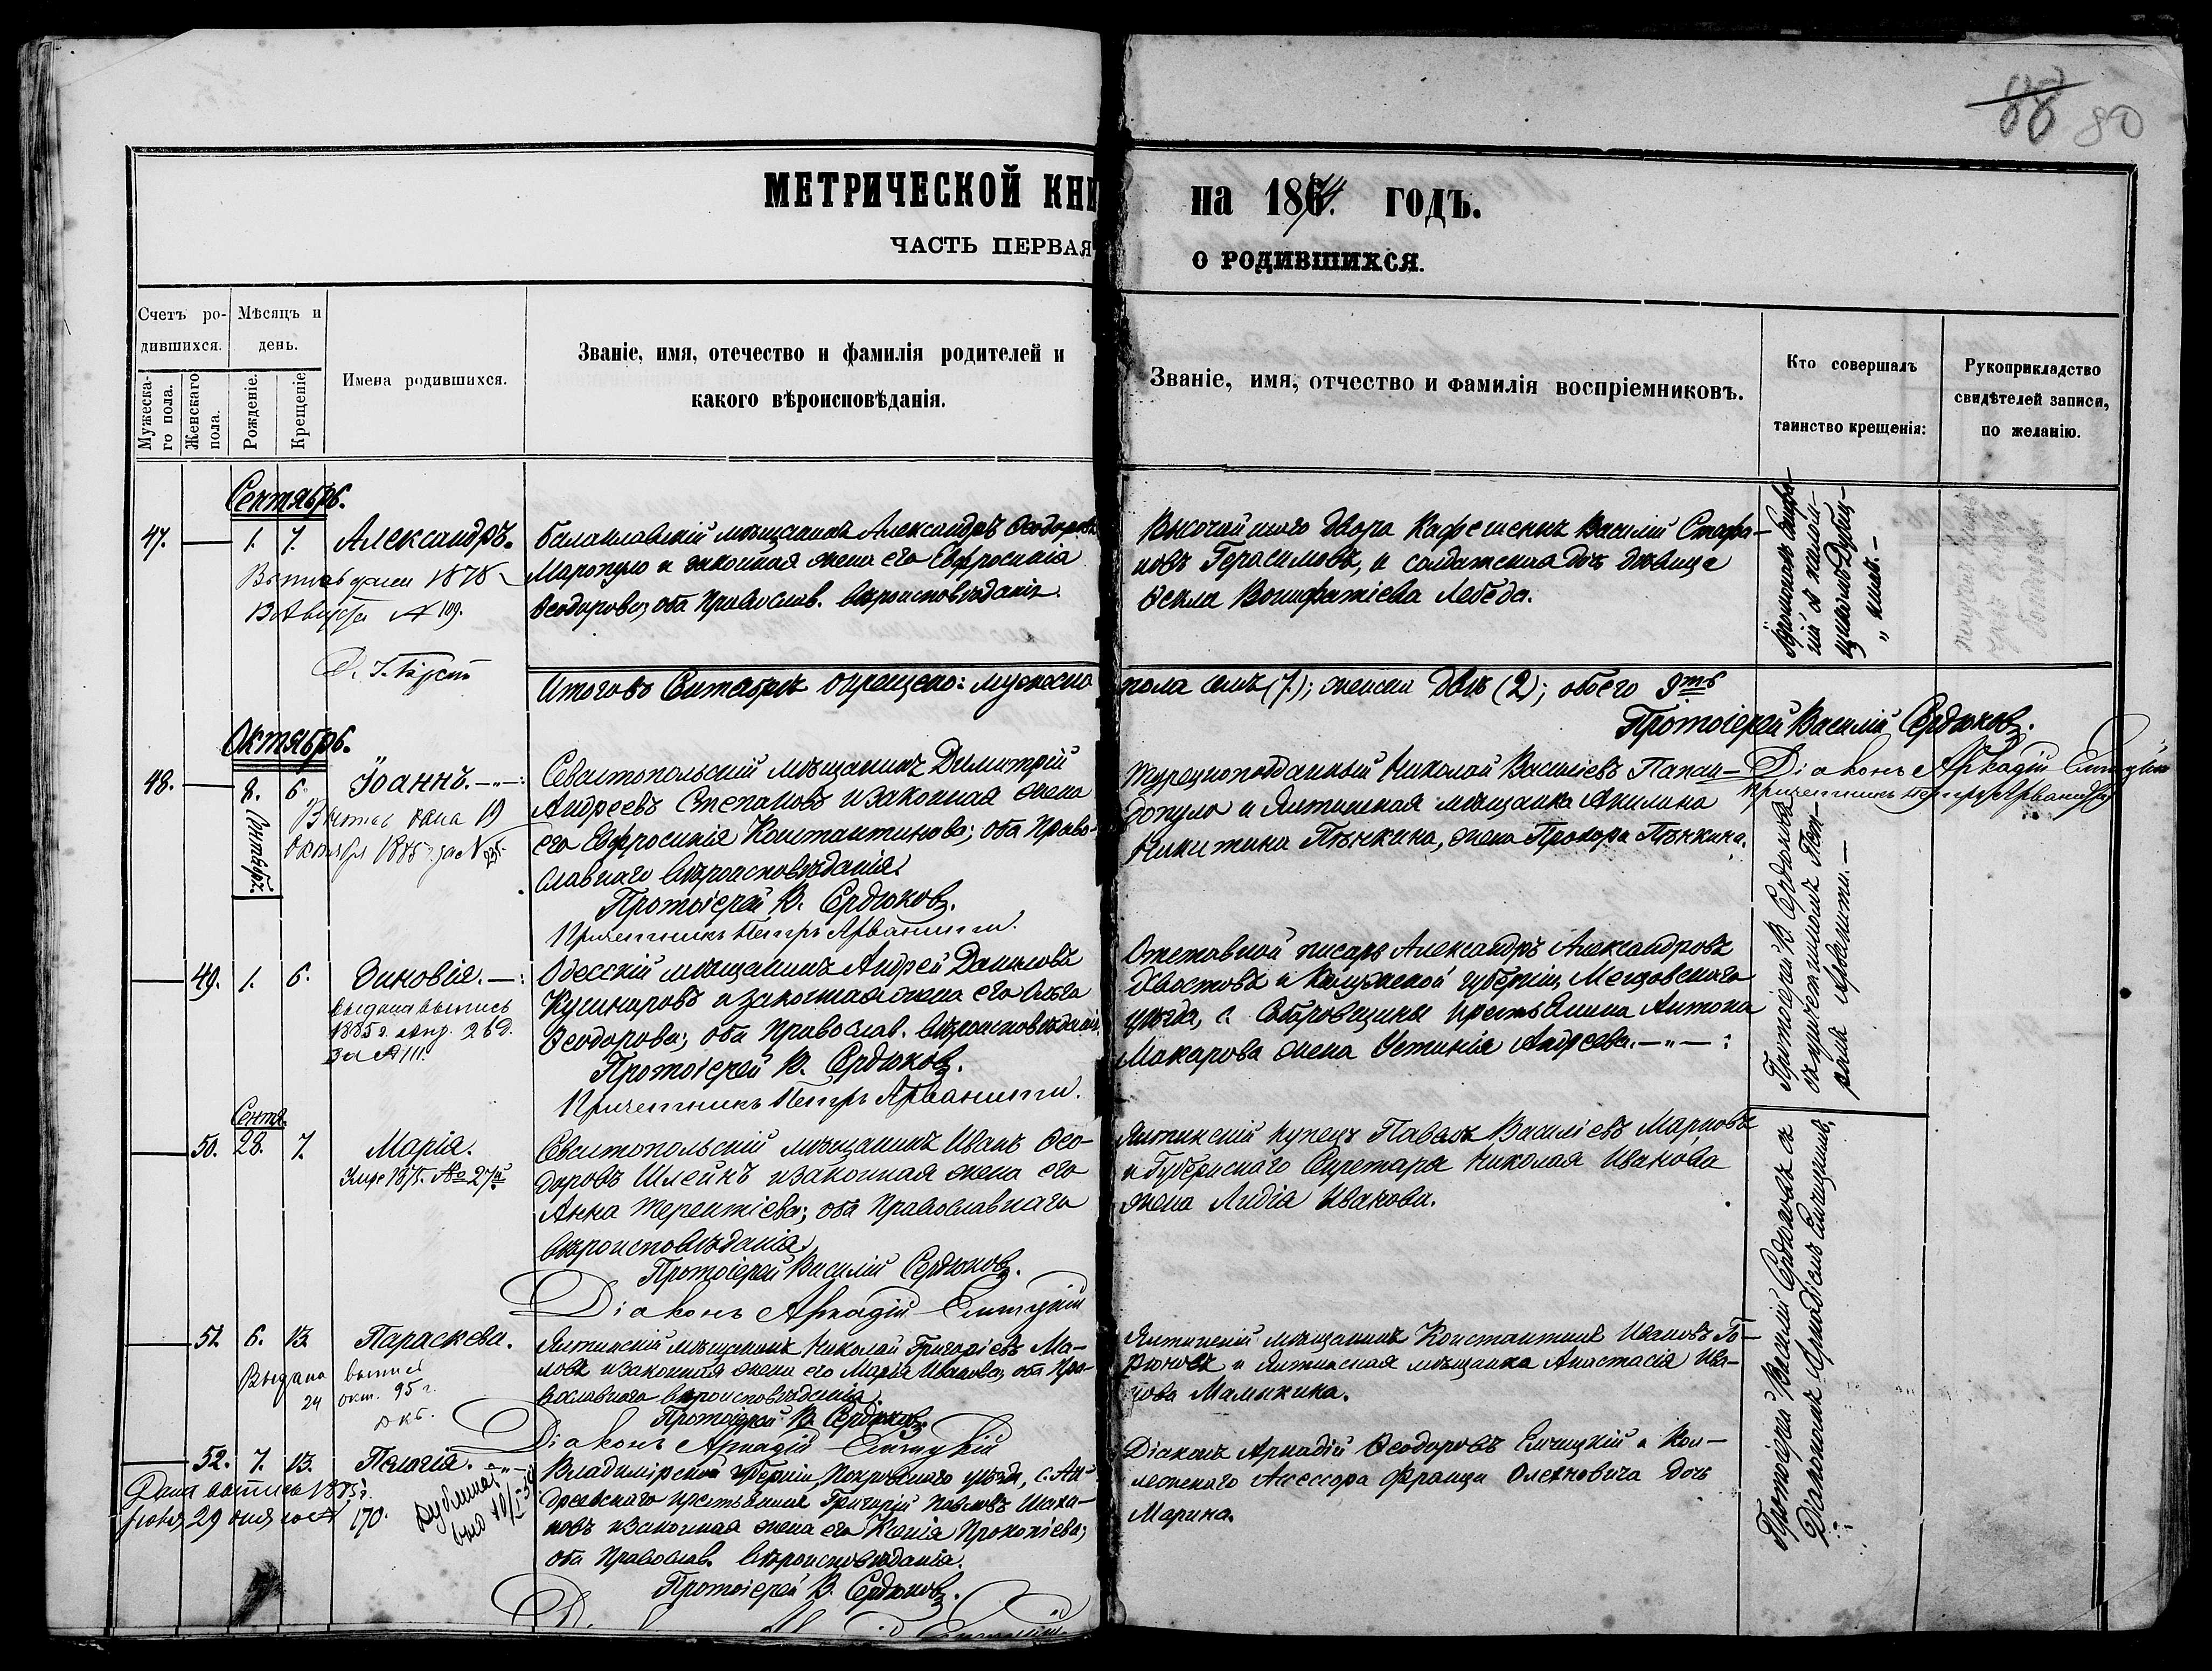 88 80
МЕТРИЧЕСКОЙ КНИ на 1874. ГОДЪ.
ЧАСТЬ ПЕРВАЯ О РОДИВШИХСЯ.
Счетъ ро-
дившихся.
Мужеска-
го пола.
Женскаго
пола.
Мѣсяцъ и
день.
Рожденіе.
Крещеніе
Имена родившихся.
Званіе, имя, отечество и фамилія родителей и
какого вѣроисповѣданія.
Званіе, имя, отчество и фамилія воспріемниковъ.
Кто совершалъ
таинство крещенія:
Рукоприкладство
свидѣтелей записи,
по желанію.
Сентябрь.
47. 1. 7. Александръ.
1878
13 Августа № 109.
Балаклавскій мѣщанинъ Александръ Ѳеодоровъ
Маропуло и законная жена его Евфросинія
Ѳеодорова; оба Православ. вѣроисповѣданія.
Высочайшаго Двора Кафешенкъ Василій Стефа-
новъ Герасимовъ, и солдатская дочь дѣвица
Ѳекла Вонифатіева Лебеда.
Итого въ Сентябрѣ окрещено: мужеска
пола семь (7.); женска двѣ (2); обоего 9ть
Протоіерей Василій Сердюковъ.
Діаконъ Аркадій Ельчицкій
Причетникъ Петръ Арванити
Октябрь.
48. 8. Сентябрь. 6. Іоаннъ.
Выпись дана 19
Октября 1885 г. за № 235.
Севастопольскій мѣщанинъ Димитрій
Андреевъ Степановъ и законная жена
его Евфросинія Константинова; оба Право-
славнаго вѣроисповѣданія.
Протоіерей В. Сердюковъ.
Причетникъ Петръ Арванити.
Турецкоподданный Николай Василіевъ Папан-
допуло и Ялтинская мѣщанка Акилина
Никитина Пѣнкина, жена Прохора Пѣнкина.
Протоіерей В. Сердюковъ
съ причетникомъ Пет-
ромъ Арванити.
49. 1. 6. Зиновія.
выдана выпись
1885 г. 26 д.
за № 111.
Одесскій мѣщанинъ Андрей Даниловъ
Кушнаровъ и законная жена его Ольга
Ѳеодорова; оба Православ. вѣроисповѣданія.
Протоіерей В. Сердюковъ.
Причетникъ Петръ Арванити.
Отставной писарь Александръ Александровъ
Хвостовъ и Калужской губерніи, Мещовскаго
уѣзда, с. крестьянина Антона
Макарова жена Устинія Андреева.
Сентя.
50. 28. 7. Марія.
Севастопольскій мѣщанинъ Иванъ Ѳео-
доровъ Шлейнъ и законная жена его
Анна Терентіева; оба Православнаго
вѣроисповѣданія.
Протоіерей Василій Сердюковъ.
Діаконъ Аркадій Ельчицкій
Ялтинскій купецъ Павелъ Василіевъ Марковъ
и Губернскаго Секретаря Николая Иванова
жена Лидія Иванова.
Протоіерей Василій Сердюковъ съ
Діакономъ Аркадіемъ Ельчицкимъ.
51. 6. 13. Параскева.
Выдана выпись
24 окт. 95 г.
Ялтинскій мѣщанинъ Николай Григоріевъ Ма-
ловъ и законная жена его Марія Иванова; оба Пра-
вославнаго вѣроисповѣданія.
Протоіерей В. Сердюковъ
Діаконъ Аркадій Ельчицкій
Ялтинскій мѣщанинъ Константинъ Ивановъ Го-
рюновъ и Ялтинская мѣщанка Анастасія Ива-
нова Мамыкина.
52. 7. 13. Пелагія.
Дана выпись 1885 г.
29 дня за № 170.
Владимірской губерніи, Покровскаго уѣзда, с. Ан-
дреевскаго крестьянинъ Григорій Павловъ Шаха-
новъ и законная жена его Ксенія Прокопіева;
оба Православ. вѣроисповѣданія.
Протоіерей В. Сердюковъ.
Діаконъ Аркадій Ѳеодоровъ Ельчицкій и Кол-
лежскаго Ассессора Франца Олехновича дочь
Марина.